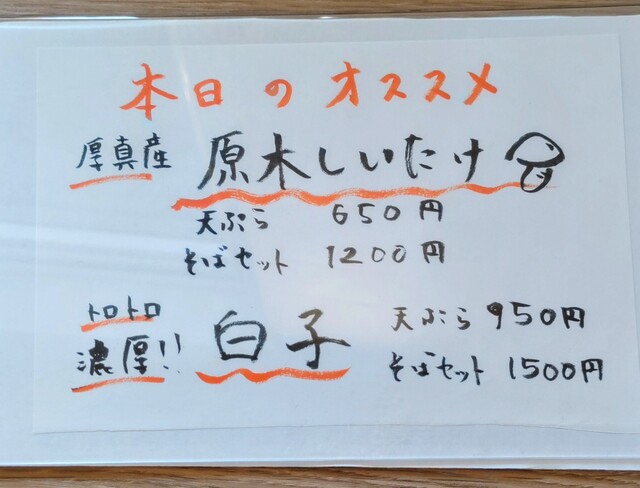 本日のオススメ
厚真産 原木しいたけ
天ぷら 650円
そばセット 1200円
トロトロ
濃厚!! 白子
天ぷら 950円
そばセット 1500円